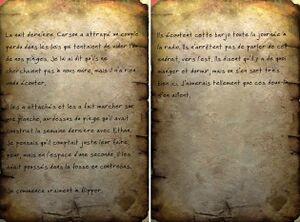 La nuit dernière, Carson a attrapé un couple
perdu dans les bois qui tentaient de vider l'un
de nos pièges. Je lui ai dit qu'ils ne
cherchaient pas à nous nuire, mais il n'a rien
voulu écouter.
Il les a attachés et les a fait marcher sur
une planche, au-dessus du piège qu'il avait
construit la semaine dernière avec Ethan.
Je pensais qu'il comptait juste leur faire
peur, mais en l'espace d'une seconde, il les
avait poussés dans la fosse en contrebas.
Je commence vraiment à flipper.
Ils écoutent cette barje toute la journée à
la radio. Ils n'arrêtent pas de parler de cet
endroit, vers l'est. Ils disent qu'il y a de quoi
manger et dormir, mais on s'en sort très
bien ici. J'aimerais tellement que ces
s'en aillent.